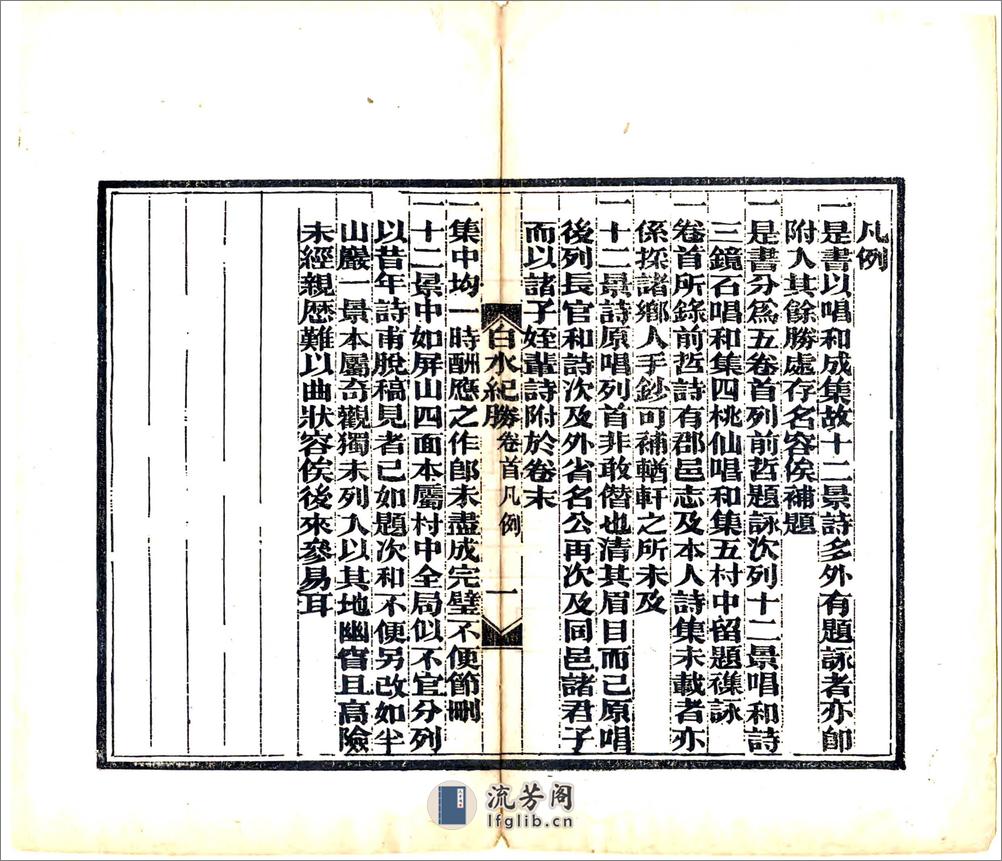 凡例
一是書以唱和成集故十二景詩多外有題詠者亦卽
附入其餘勝處存名容俟補題
一是書分爲五卷首列前哲題詠次列十二景唱和詩
三鏡石唱和集四桃仙唱和集五村中留題襍詠
一卷首所錄前哲詩有郡邑志及本人詩集未載者亦
係採諸鄉人手鈔可補輶軒之所未及
一十二景詩原唱列首非敢僭也清其眉目而已原唱
後列長官和詩次及外省名公再次及同邑諸君子
而以諸子姪輩詩附於卷末
白水紀勝 卷首凡例 一
一集中均一時酬應之作卽未盡成完璧不便節刪
一十二景中如屏山四面本屬村中全局似不宜分列
以昔年詩甫脫稿見者已如題次和不便另改如半
山巖一景本屬奇觀獨未列入以其地幽窅且高險
未經親歷難以曲狀容俟後來參易耳
流芳阁
lfglib.cn